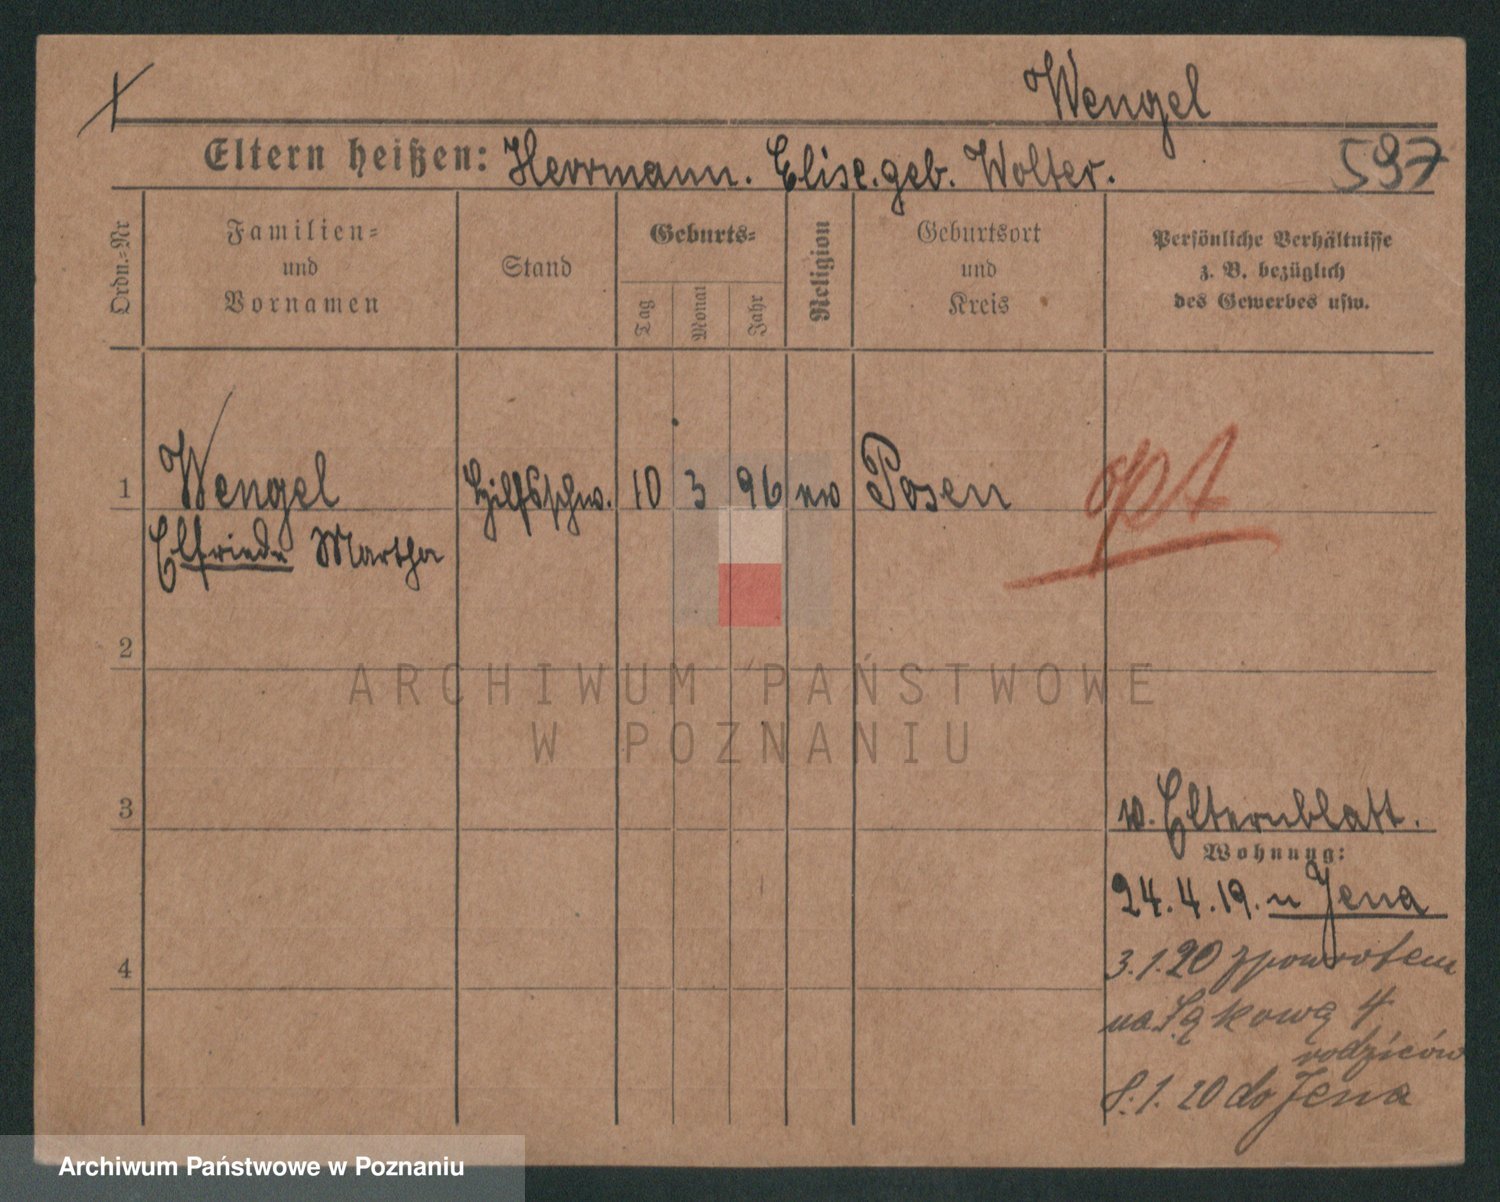 Wengel
Eltern heißen: Herrmann. Elise. geb. Wolter.
597
Ordn.-Nr
Familien-
und
Vornamen
Stand
Geburts-
Tag
Monat
Jahr
Religion
Geburtsort
und
Kreis
Persönliche Verhältnisse
z. B. bezüglich
des Gewerbes usw.
1 Wengel Hilfsschw. 10 3 96 Posen
opt
Elfriede Martha
2
ARCHIWUM PAŃSTWOWE
W POZNANIU
3
w. Elternblatt.
Wohnung:
24.4.19. n Jena
4
3.1.20 zpowrotem
na Łąkową 4
rodziców
8.1.20 do Jena
Archiwum Państwowe w Poznaniu